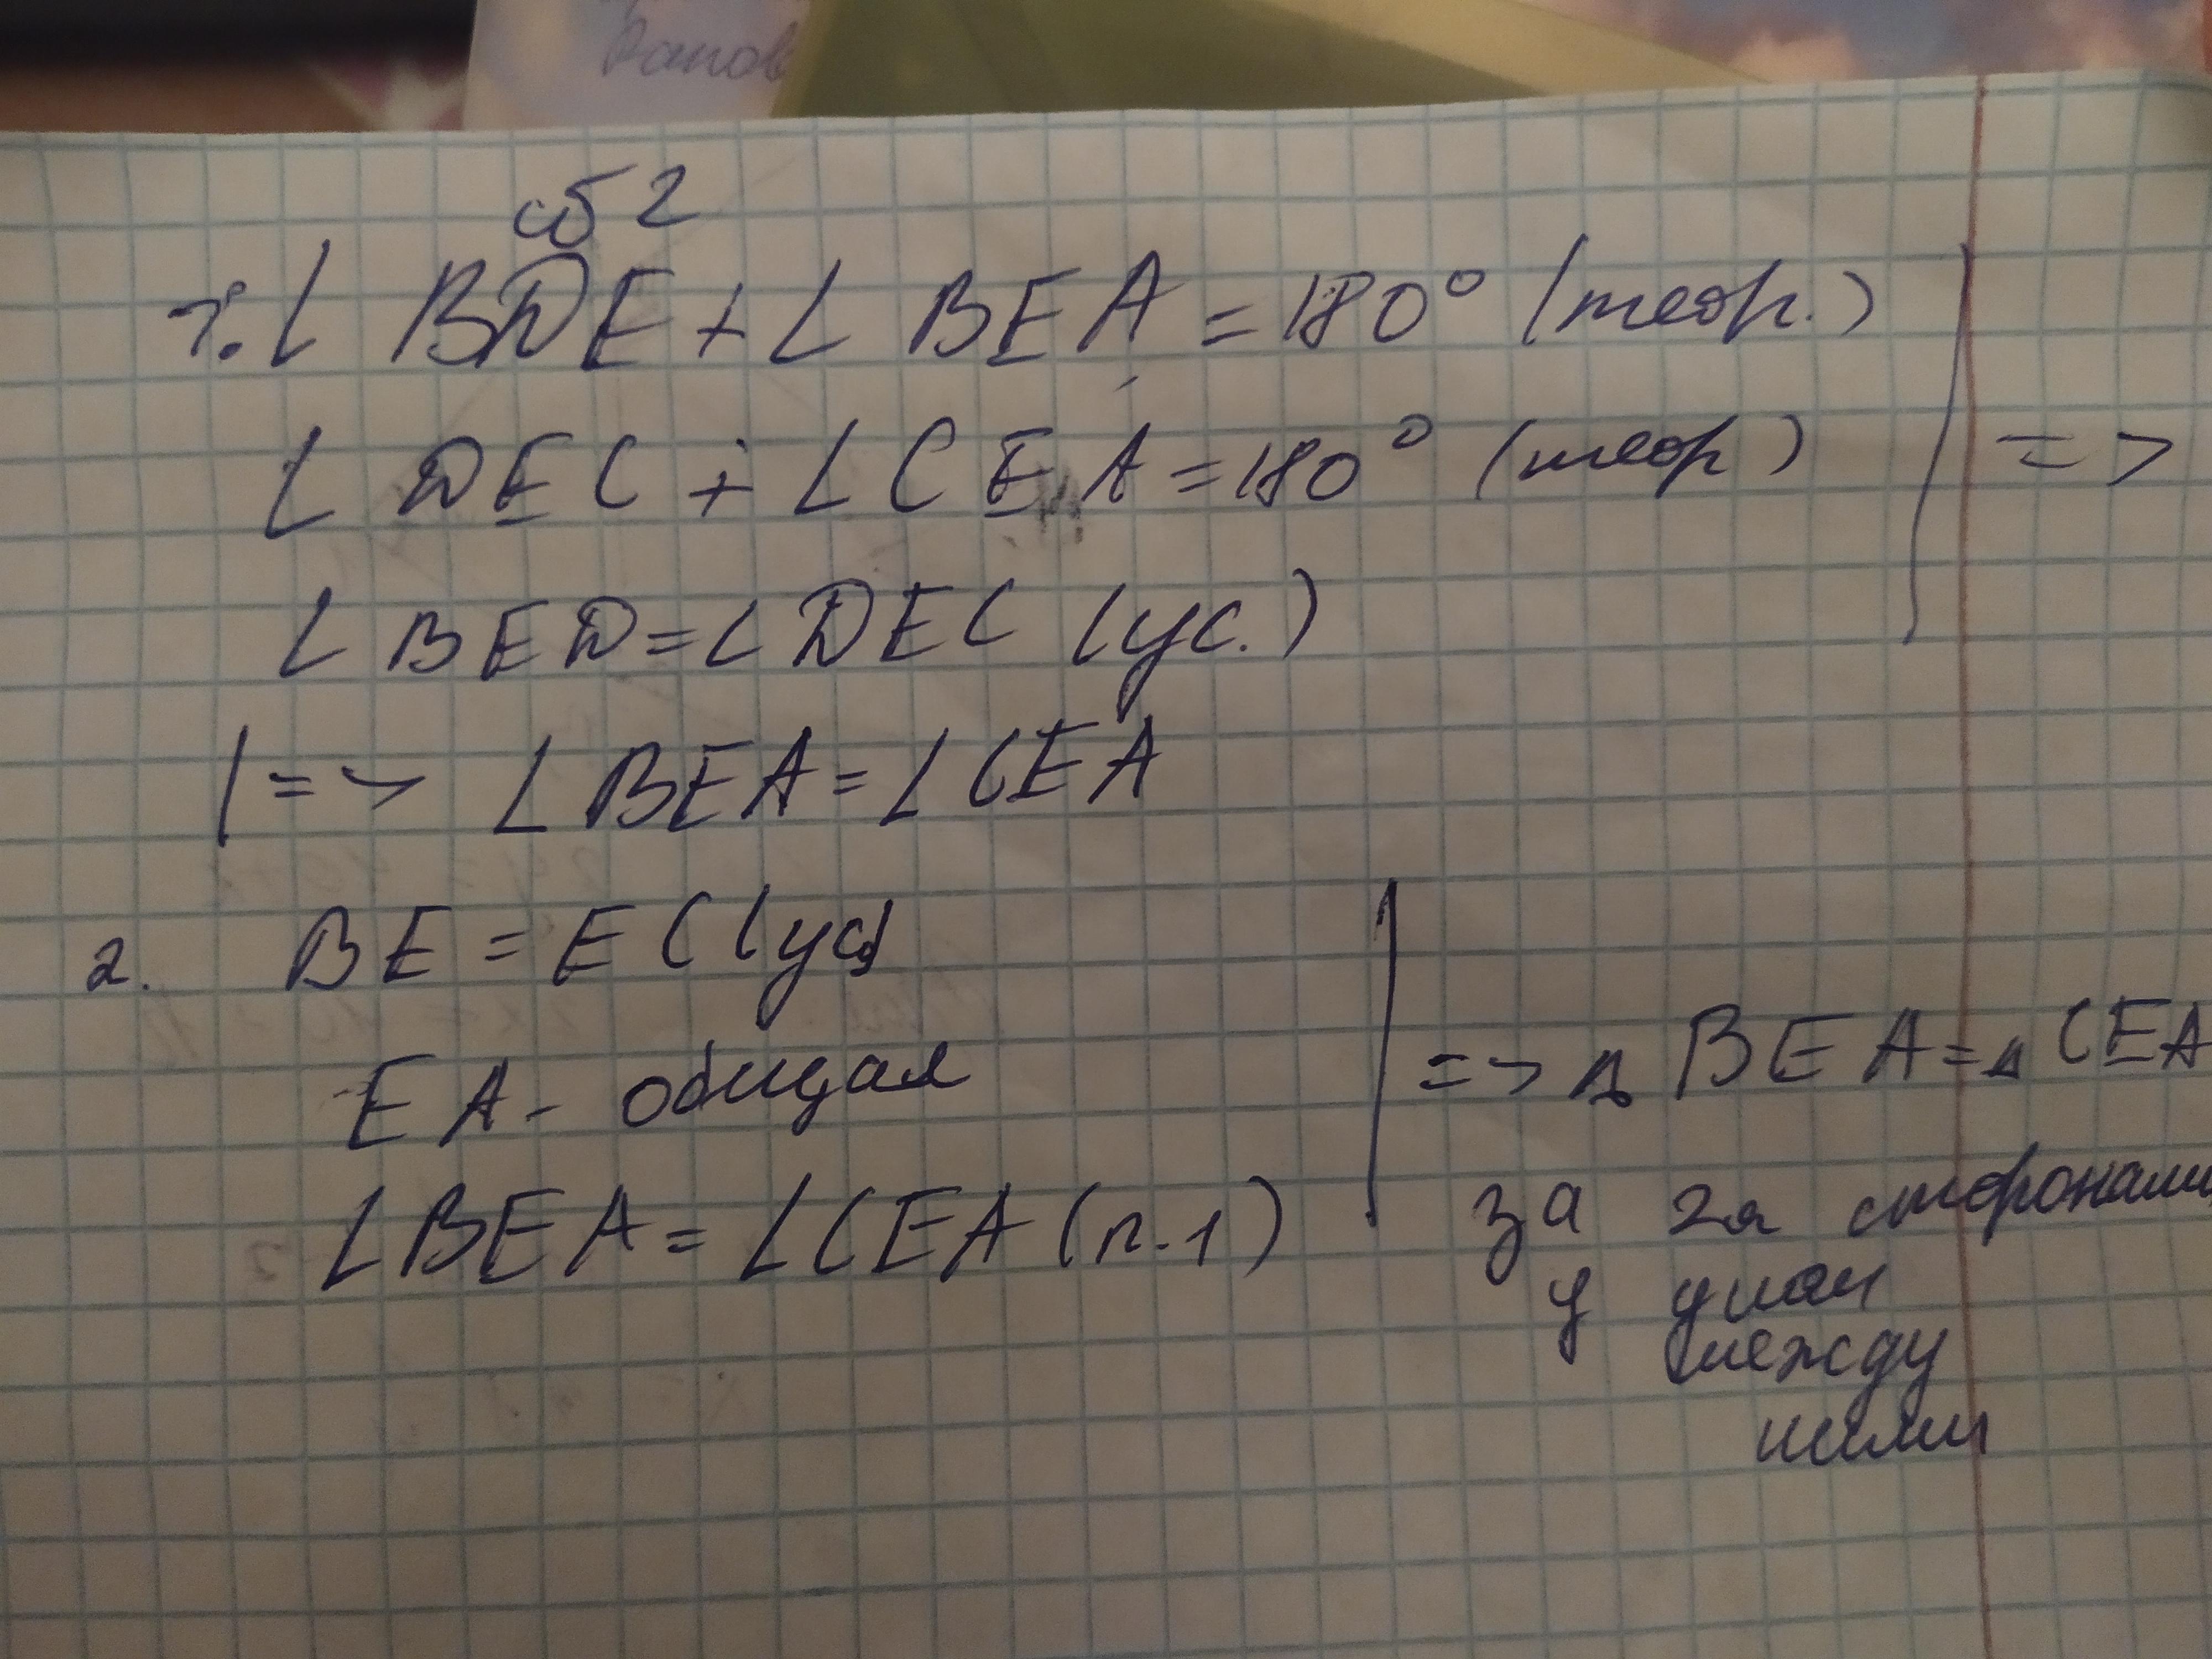 Рапов
сб 2
1. ∠ BDE + ∠ BEA = 180° (теор.)
∠ DEC + ∠ CEA = 180° (теор) | =>
∠ BED = ∠ DEC (ус.)
| => ∠ BEA = ∠ CEA
2. BE = EC (ус)
EA - общая | => Δ BEA = Δ CEA
∠ BEA = ∠ CEA (п.1) за 2я сторонами
у углам
между
ними